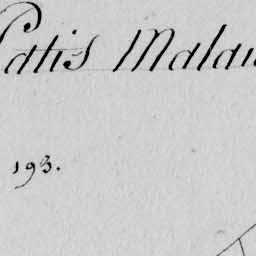 Patis Malau
193.